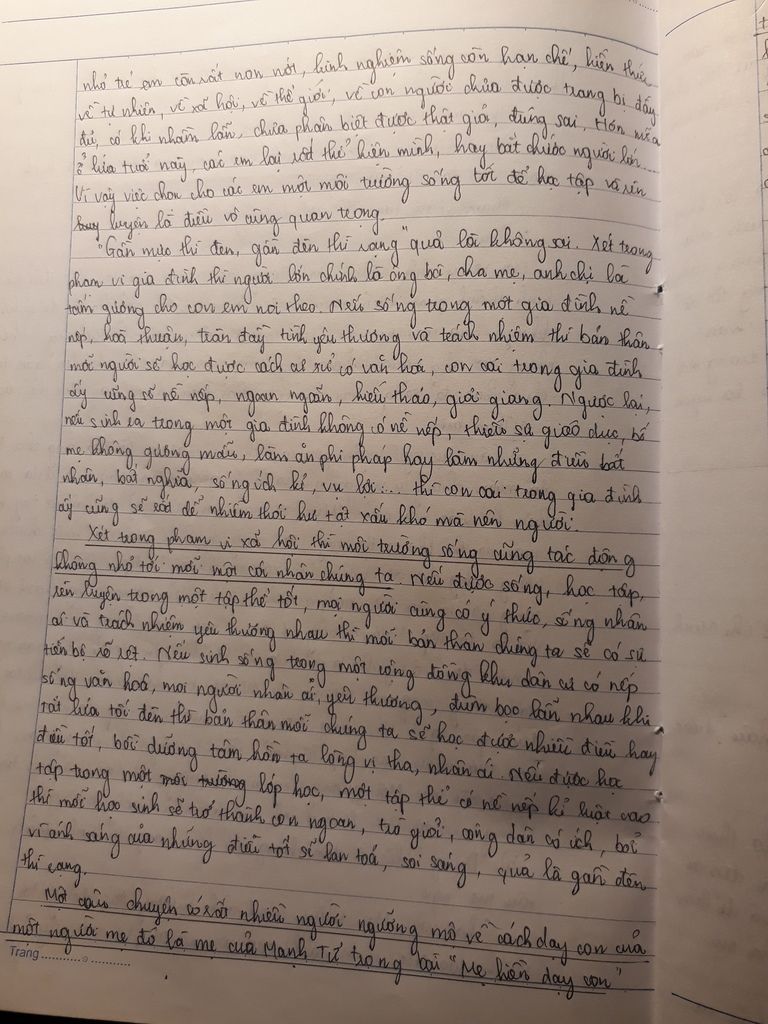 nhỏ trẻ em còn rất non nớt, kinh nghiệm sống còn hạn chế, kiến thức
về tự nhiên, về xã hội, về thế giới, về con người chưa được trang bị đầy
đủ, có khi nhầm lẫn, chưa phân biệt được thật giả, đúng sai, Hơn nữa
ở lứa tuổi này, các em lại rất thể hiện mình, hay bắt chước người lớn...
Vì vậy việc chọn cho các em một môi trường sống tốt để học tập và rèn
luyện là điều vô cùng quan trọng.
"Gần mực thì đen, gần đèn thì rạng" quả là không sai. Xét trong
phạm vi gia đình thì người lớn chính là ông bà, cha mẹ, anh chị là
tấm gương cho con em noi theo. Nếu sống trong một gia đình nề
nếp, hoà thuận, tràn đầy tình yêu thương và trách nhiệm thì bản thân
mỗi người sẽ học được cách cư xử có văn hoá, con cái trong gia đình
ấy cũng sẽ nề nếp, ngoan ngoãn, hiếu thảo, giỏi giang. Ngược lại,
nếu sinh ra trong một gia đình không có nề nếp, thiếu sự giáo dục, bố
mẹ không gương mẫu, làm ăn phi pháp hay làm những điều bất
nhân, bất nghĩa, sống ích kỉ, vụ lợi... thì con cái trong gia đình
ấy cũng sẽ rất dễ nhiễm thói hư tật xấu khó mà nên người.
Xét trong phạm vi xã hội thì môi trường sống cũng tác động
không nhỏ tới mỗi một cá nhân chúng ta. Nếu được sống, học tập,
rèn luyện trong một tập thể tốt, mọi người cùng có ý thức, sống nhân
ái và trách nhiệm yêu thương nhau thì mỗi bản thân chúng ta sẽ có sự
tiến bộ rõ rệt. Nếu sinh sống trong một cộng đồng khu dân cư có nếp
sống văn hoá, mọi người nhân ái, yêu thương, đùm bọc lẫn nhau khi
tắt lửa tối đèn thì bản thân mỗi chúng ta sẽ học được nhiều điều hay
điều tốt, bồi dưỡng tâm hồn ta lòng vị tha, nhân ái. Nếu được học
tập trong một môi trường lớp học, một tập thể có nề nếp kỉ luật cao
thì mỗi học sinh sẽ trở thành con ngoan, trò giỏi, công dân có ích, bởi
vì ánh sáng của những điều tốt sẽ lan toả, soi sáng, quả là gần đèn
thì rạng.
Một câu chuyện có rất nhiều người ngưỡng mộ về cách dạy con của
một người mẹ đó là mẹ của Mạnh Tử trong bài "Mẹ hiền dạy con"
Trang